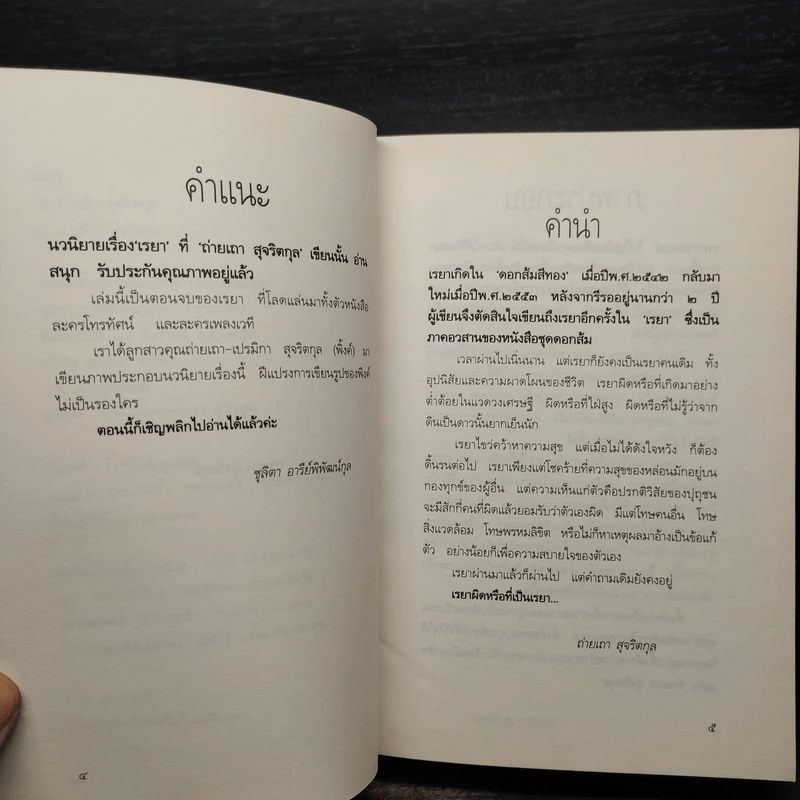 คำแนะ
นวนิยายเรื่อง'เรยา' ที่ 'ถ่ายเถา สุจริตกุล' เขียนนั้น อ่าน
สนุก รับประกันคุณภาพอยู่แล้ว
เล่มนี้เป็นตอนจบของเรยา ที่โลดแล่นมาทั้งตัวหนังสือ
ละครโทรทัศน์ และละครเพลงเวที
เราได้ลูกสาวคุณถ่ายเถา-เปรมิกา สุจริตกุล (พิ้งค์) มา
เขียนภาพประกอบนวนิยายเรื่องนี้ ฝีแปรงการเขียนรูปของพิงค์
ไม่เป็นรองใคร
ตอนนี้ก็เชิญพลิกไปอ่านได้แล้วค่ะ
ชุลิตา อารีย์พิพัฒน์กุล
๔
คำนำ
เรยาเกิดใน 'ดอกส้มสีทอง' เมื่อปีพ.ศ.๒๕๔๒ กลับมา
ใหม่เมื่อปีพ.ศ.๒๕๕๓ หลังจากรีรออยู่นานกว่า ๒ ปี
ผู้เขียนจึงตัดสินใจเขียนถึงเรยาอีกครั้งใน 'เรยา' ซึ่งเป็น
ภาคอวสานของหนังสือชุดดอกส้ม
เวลาผ่านไปเนิ่นนาน แต่เรยาก็ยังคงเป็นเรยาคนเดิม ทั้ง
อุปนิสัยและความผาดโผนของชีวิต เรยาผิดหรือที่เกิดมาอย่าง
ต่ำต้อยในแวดวงเศรษฐี ผิดหรือที่ใฝ่สูง ผิดหรือที่ไม่รู้ว่าจาก
ดินเป็นดาวนั้นยากเย็นนัก
เรยาไขว่คว้าหาความสุข แต่เมื่อไม่ได้ดังใจหวัง ก็ต้อง
ดิ้นรนต่อไป เรยาเพียงแต่โชคร้ายที่ความสุขของหล่อนมักอยู่บน
กองทุกข์ของผู้อื่น แต่ความเห็นแก่ตัวคือปรกติวิสัยของปุถุชน
จะมีสักกี่คนที่ผิดแล้วยอมรับว่าตัวเองผิด มีแต่โทษคนอื่น โทษ
สิ่งแวดล้อม โทษพรหมลิขิต หรือไม่ก็หาเหตุผลมาอ้างเป็นข้อแก้
ตัว อย่างน้อยก็เพื่อความสบายใจของตัวเอง
เรยาผ่านมาแล้วก็ผ่านไป แต่คำถามเดิมยังคงอยู่
เรยาผิดหรือที่เป็นเรยา...
ถ่ายเถา สุจริตกุล
๕